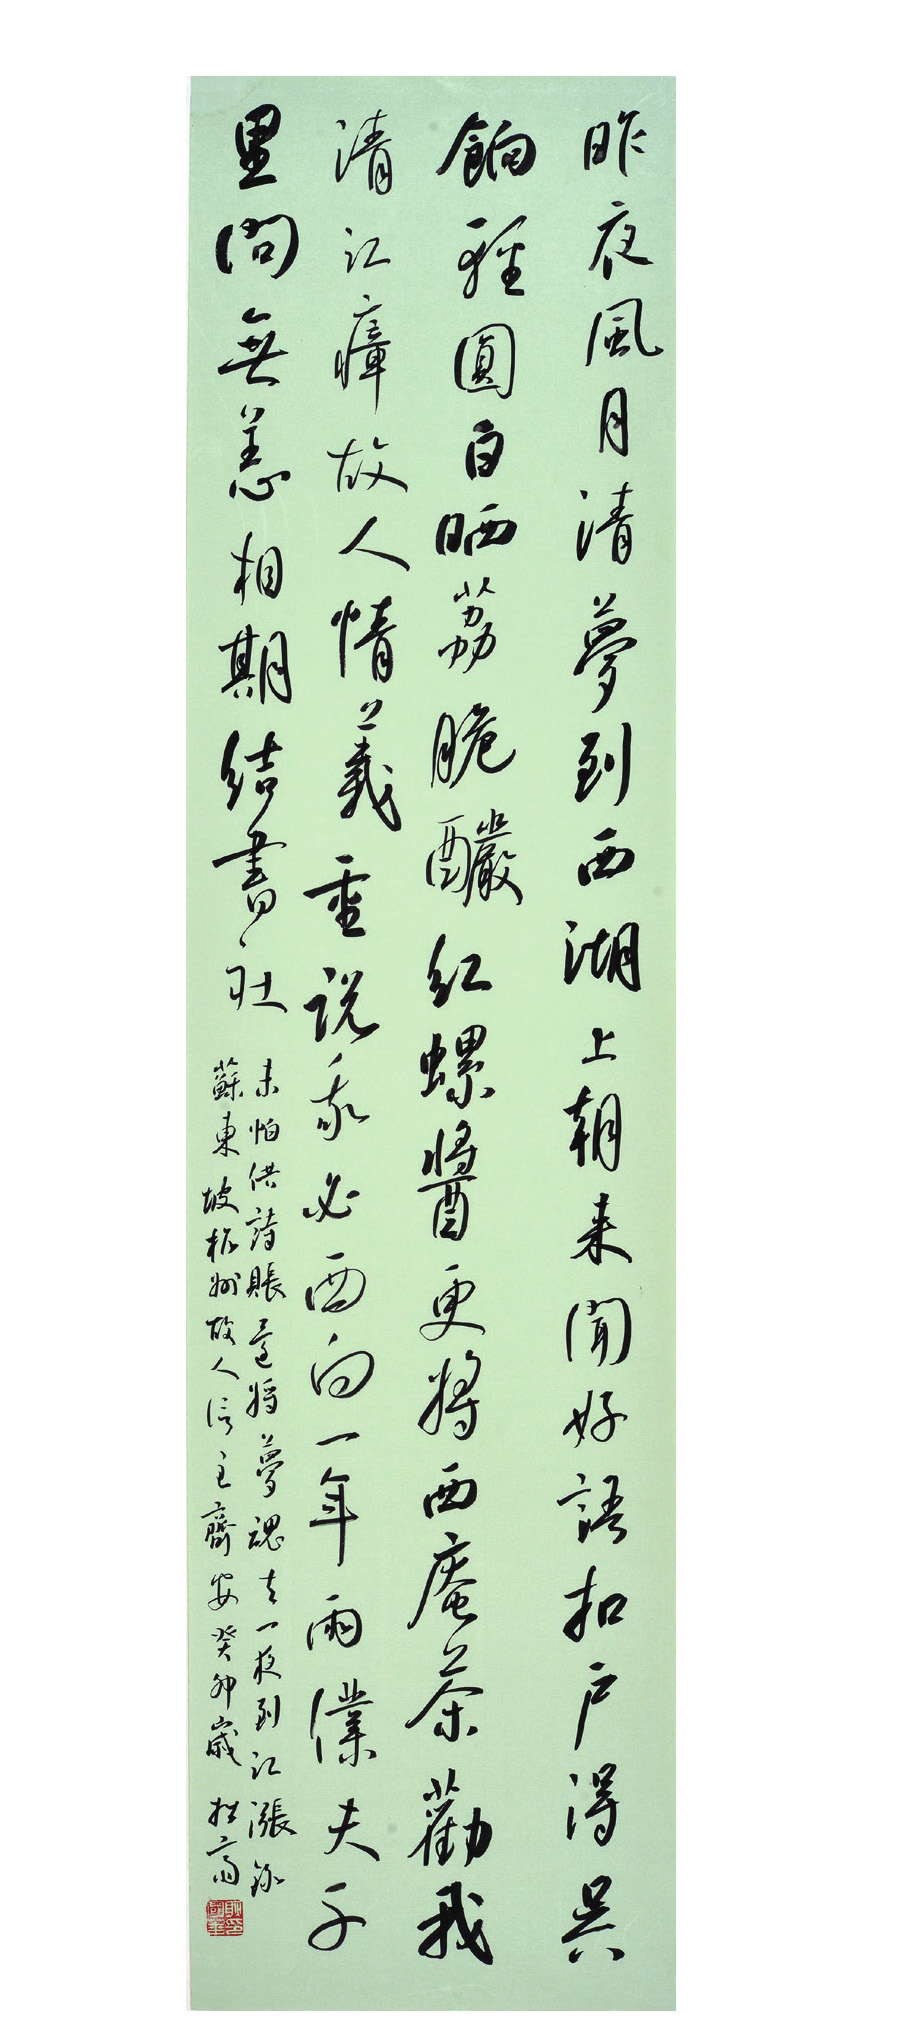 昨夜風月清夢到西湖上朝来聞好語扣户得吳
餉輕圓白晒荔脆釅紅螺醬更將西庵茶勸我
清江瘴故人情義重說我必西向一年兩僕夫千
里問無恙相期結書社
未怕供詩賬還將夢魂去一夜到江漲錄
蘇東坡杭州故人信至齊安癸卯歲拙齋